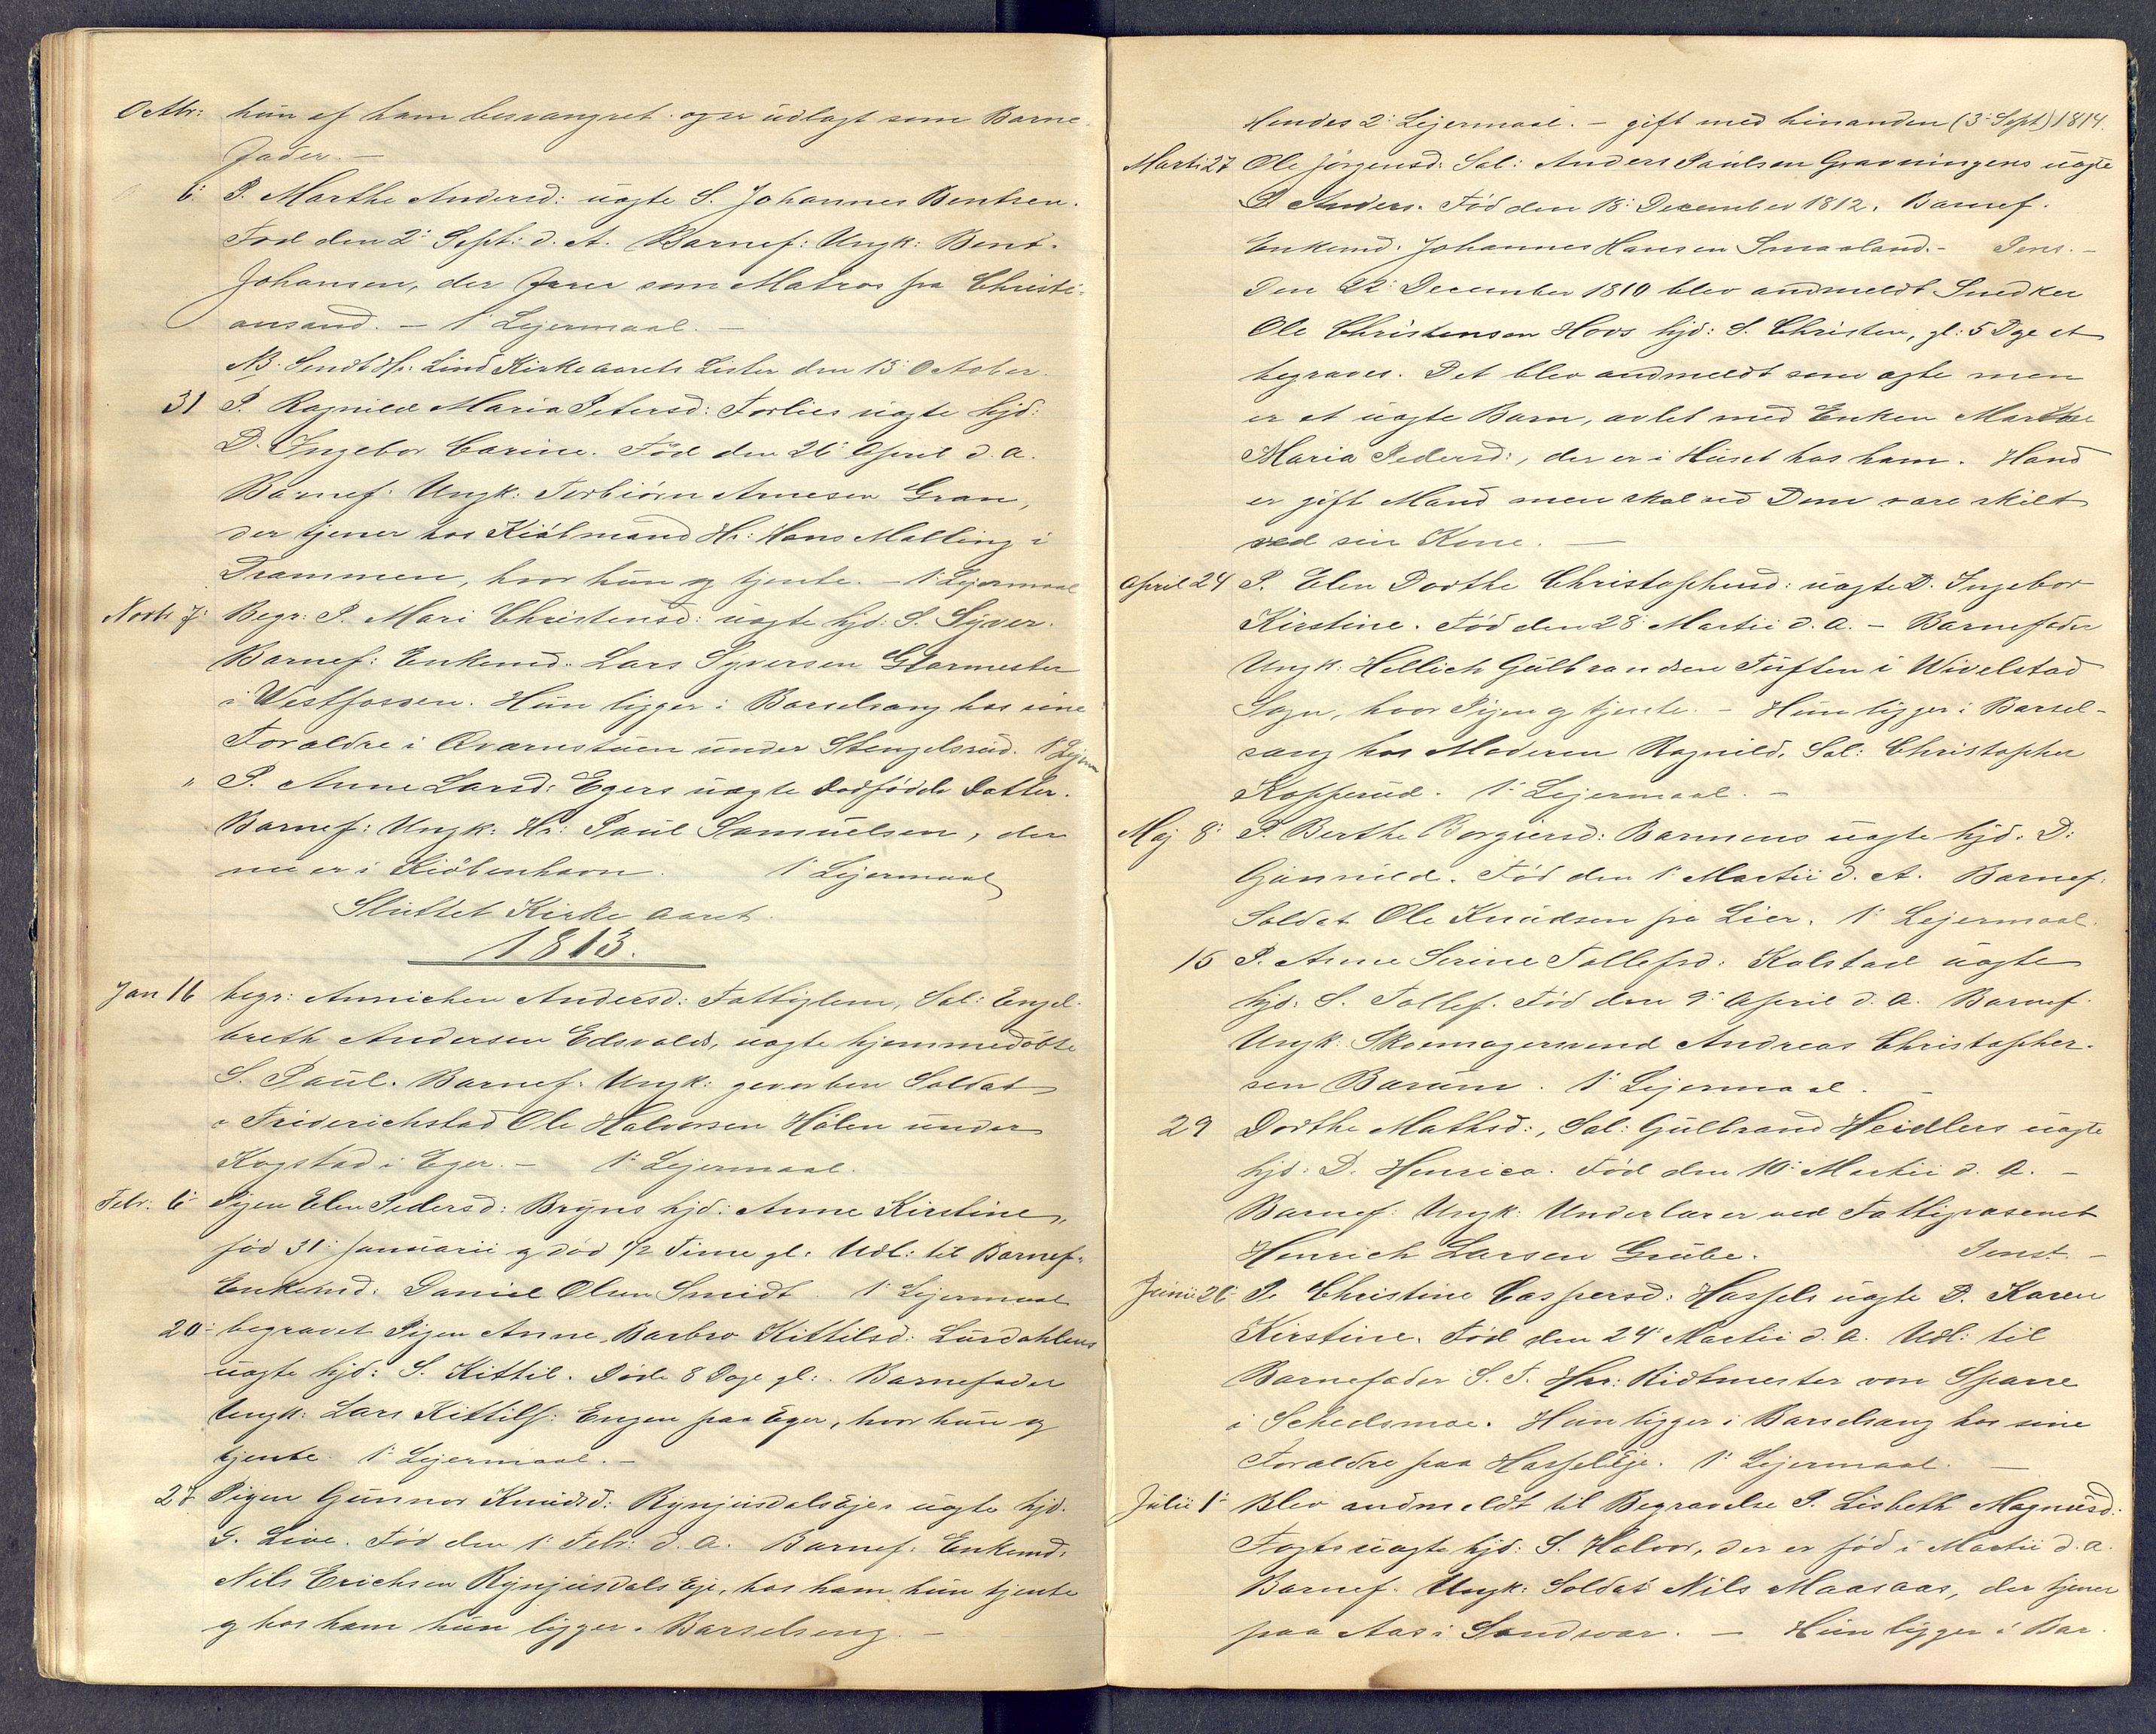 Octbr: hun af ham besvangret og er udlagt som Barne
fader. —
6: P. Marthe Andersd: uægte S. Johannes Bentsen.
Fød den 2: Sept: d. A. Barnef: Ungk: Bent
Johansen, der farer som Matros fra Christi-
ansand. — 1: Lejermaal. —
NB. Sendt Hr: Lind Kirkeaarets Lister den 15 October.
31 P. Ragnild Maria Petersd: Forlies uægte hjd:
D. Ingebor Carine. Fød den 26: April d. a.
Barnef: Ungk: Torbiörn Arnesen Gran,
der tjener hos Kiöbmand Hr: Hans Malling i
Drammen, hvor hun og tjente. — 1: Lejermaal
Novbr 7: Begr: P. Mari Christensd: uægte hjd: S. Syver.
Barnef: Enkemd: Lars Syversen Glarmester
i Westfossen. Hun ligger i Barselsæng hos sine
Forældre i Qvarnstuen under Stengelsrud. 1: Lejrm
" P. Anne Larsd: Egers uægte dødfødde Datter.
Barnef: Ungk: Hr: Paul Samuelsen, der
nu er i Kiöbenhavn. 1: Lejermaal
Sluttet Kirke aaret.
1813.
Jan 16 begr: Annichen Andersd: Fattiglem, Sal: Engel-
breth Andersen Edsvolds, uægte hjemmedöbte
S. Paul. Barnef: Ungk: gevorben Soldat
i Friderichstad Ole Halvorsen Hølen under
Kogstad i Eger. — 1: Lejermaal.
Febr: 6: Pigen Elen Pedersd: Bryns hjd: Anne Kirstine,
fød 31: Januarii og død 1/2 Time gl: Udl: til Barnef.
Enkemd: Daniel Olsen Smidt. 1: Lejermaal
20: begravet Pigen Anne Barbro Kittilsd: Lurdahlens
uægte hjd: S. Kittil. Døde 8 Dage gl: Barnefader
Ungk: Lars Kittils: Engen paa Eger, hvor hun og
tjente. 1: Lejermaal. —
27 Pigen Gunnor Knudsd: Ryngiisdals Ejes uægte hjd.
G. Live. Fød den 1: Febr: d. a. Barnef: Enkemd:
Nils Erichsen Ryngiisdals Eje, hos ham hun tjente
og hos ham hun ligger i Barselseng. —
Hendes 2: Lejermaal. — gift med hinanden (3: Sept) 1814.
Marti 27 Ole Jörgensd: Sal: Anders Paulsen Gravningens uægte
S. Anders. Fød den 18: December 1812. Barnef.
Enkemd: Johannes Hansen Smaaland. —
Den 22: December 1810 blev andmeldt Snedker
Ole Christensen Hovs hjd: S. Christen, gl: 5 Dge at
begraves. Det blev andmeldt som ægte men
er et uægte Barn, avlet med Enken Marthe
Maria Pedersd:, der er i Huset hos ham. Hand
er gift Mand men skal ved Dom være skilt
ved sin Kone. —
April 24 P. Elen Dorthe Christophersd: uægte D. Ingebor
Kirstine. Fød den 28: Martii d. a. — Barnefader
Ungk: Hellich Gulbrandsen Tuften i Wivelstad
Sogn, hvor Pigen og tjente. — Hun ligger i Barsel-
sæng hos Moderen Ragnild, Sal: Christopher
Kopperud. 1: Lejermaal. —
Maj 8: P. Berthe Borgiersd: Barmens uægte hjd. D:
Gunnild. Fød den 1: Martii d. A. Barnef:
Soldat Ole Knudsen fra Lier. 1: Lejermaal.
15 P. Anne Serine Tollefsd: Kolstad uægte
hjd: S. Tollef. Fød den 9: April d. a. Barnef.
Ungk: Skomagersvend Andreas Christopher-
sen Barum. 1: Lejermaal. —
29 Dorthe Mathsd:, Sal: Gulbrand Heidlers uægte
hjd: D. Henrica. Fød den 10: Martii d. a. —
Barnef: Ungk: Underlærer ved Fattigvæsenet
Henrich Larsen Grube. —
Junii 26 P. Christine Caspersd: Hassels uægte D. Karen
Kirstine. Fød den 24: Martii d. a. Udl: til
Barnefader S. T. Hr: Ridtmester von Sparre
i Schedsmoe. Hun ligger i Barselsæng hos sine
Forældre paa Hassel Eje. 1: Lejermaal. —
Julii 1: Blev andmeldt til Begravelse P. Lisbeth Magnusd:
Fogts uægte hjd: S. Halvor, der er fød i Martii d. a.
Barnef. Ungk: Soldat Nils Maasaas, der tjener
paa Aas i Sandsvær. — Hun ligger i Bar-